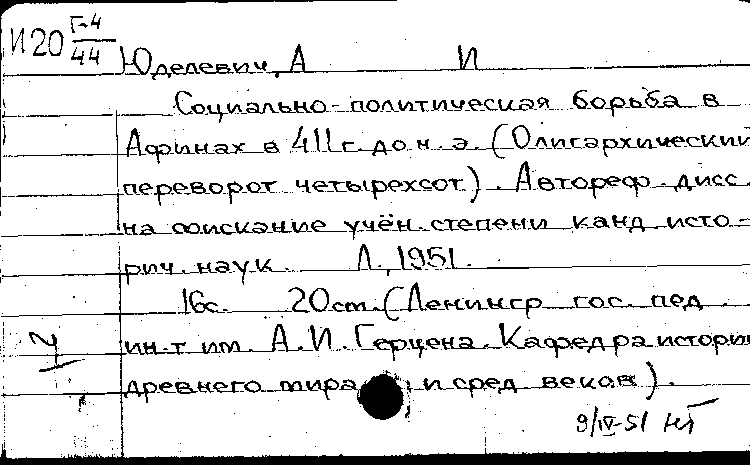 И20 Г-4/44
Юделевич, А И
Социально-политическая борьба в
Афинах в 411 г. до н. э. (Олигархический
переворот четырехсот). Автореф. дисс.
на соискание учён. степени канд. исто-
рич. наук. Л., 1951.
16с. 20ст. (Ленингр. гос. пед.
ин-т им. А.И. Герцена. Кафедра истории
древнего мира и сред. веков).
9/IV-51